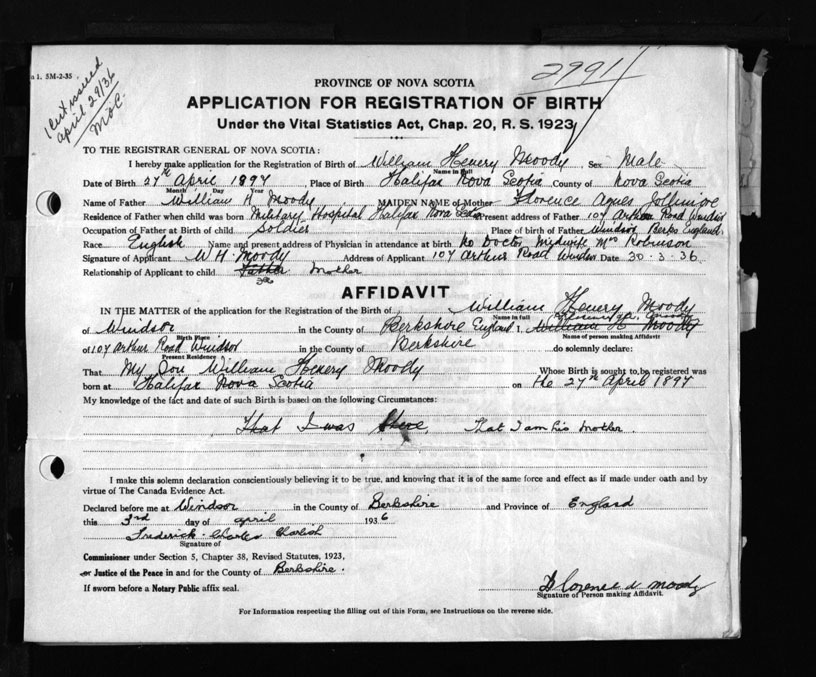 a 1. 5M-2-35
1 Cert issued
April 29/36
2991
PROVINCE OF NOVA SCOTIA
APPLICATION FOR REGISTRATION OF BIRTH
Under the Vital Statistics Act, Chap. 20, R. S. 1923
TO THE REGISTRAR GENERAL OF NOVA SCOTIA:
I hereby make application for the Registration of Birth of William Henery Moody Sex Male
Name in full
Date of Birth 27th April 1897 Place of Birth Halifax Nova Scotia County of Nova Scotia
Month Day Year
Name of Father William H Moody MAIDEN NAME of Mother Florence Agnes
Residence of Father when child was born Military Hospital Halifax Nova Scotia Present address of Father 107 Arthur Road Windsor
Occupation of Father at Birth of child Soldier Place of birth of Father Windsor Berks England
Race English Name and present address of Physician in attendance at birth No Doctor, Midwife Mrs Robinson
Signature of Applicant W H. Moody Address of Applicant 107 Arthur Road Windsor Date 30-3-36
Relationship of Applicant to child Father Mother
AFFIDAVIT
IN THE MATTER of the application for the Registration of the Birth of William Henery Moody
Name in full
of Windsor in the County of Berkshire England I, William H Moody
Birth Place Name of person making Affidavit
of 107 Arthur Road Windsor in the County of Berkshire do solemnly declare:
Present Residence
That My Son William Henery Moody Whose Birth is sought to be registered was
born at Halifax Nova Scotia on the 27th April 1897
My knowledge of the fact and date of such Birth is based on the following Circumstances:
That I was there, That I am his Mother.
I make this solemn declaration conscientiously believing it to be true, and knowing that it is of the same force and effect as if made under oath and by
virtue of The Canada Evidence Act.
Declared before me at Windsor in the County of Berkshire and Province of England
this 3rd day of April 1936
Frederick Charles
Signature of
Commissioner under Section 5, Chapter 38, Revised Statutes, 1923,
or Justice of the Peace in and for the County of Berkshire.
If sworn before a Notary Public affix seal.
Florence A Moody
Signature of Person making Affidavit.
For Information respecting the filling out of this Form, see Instructions on the reverse side.